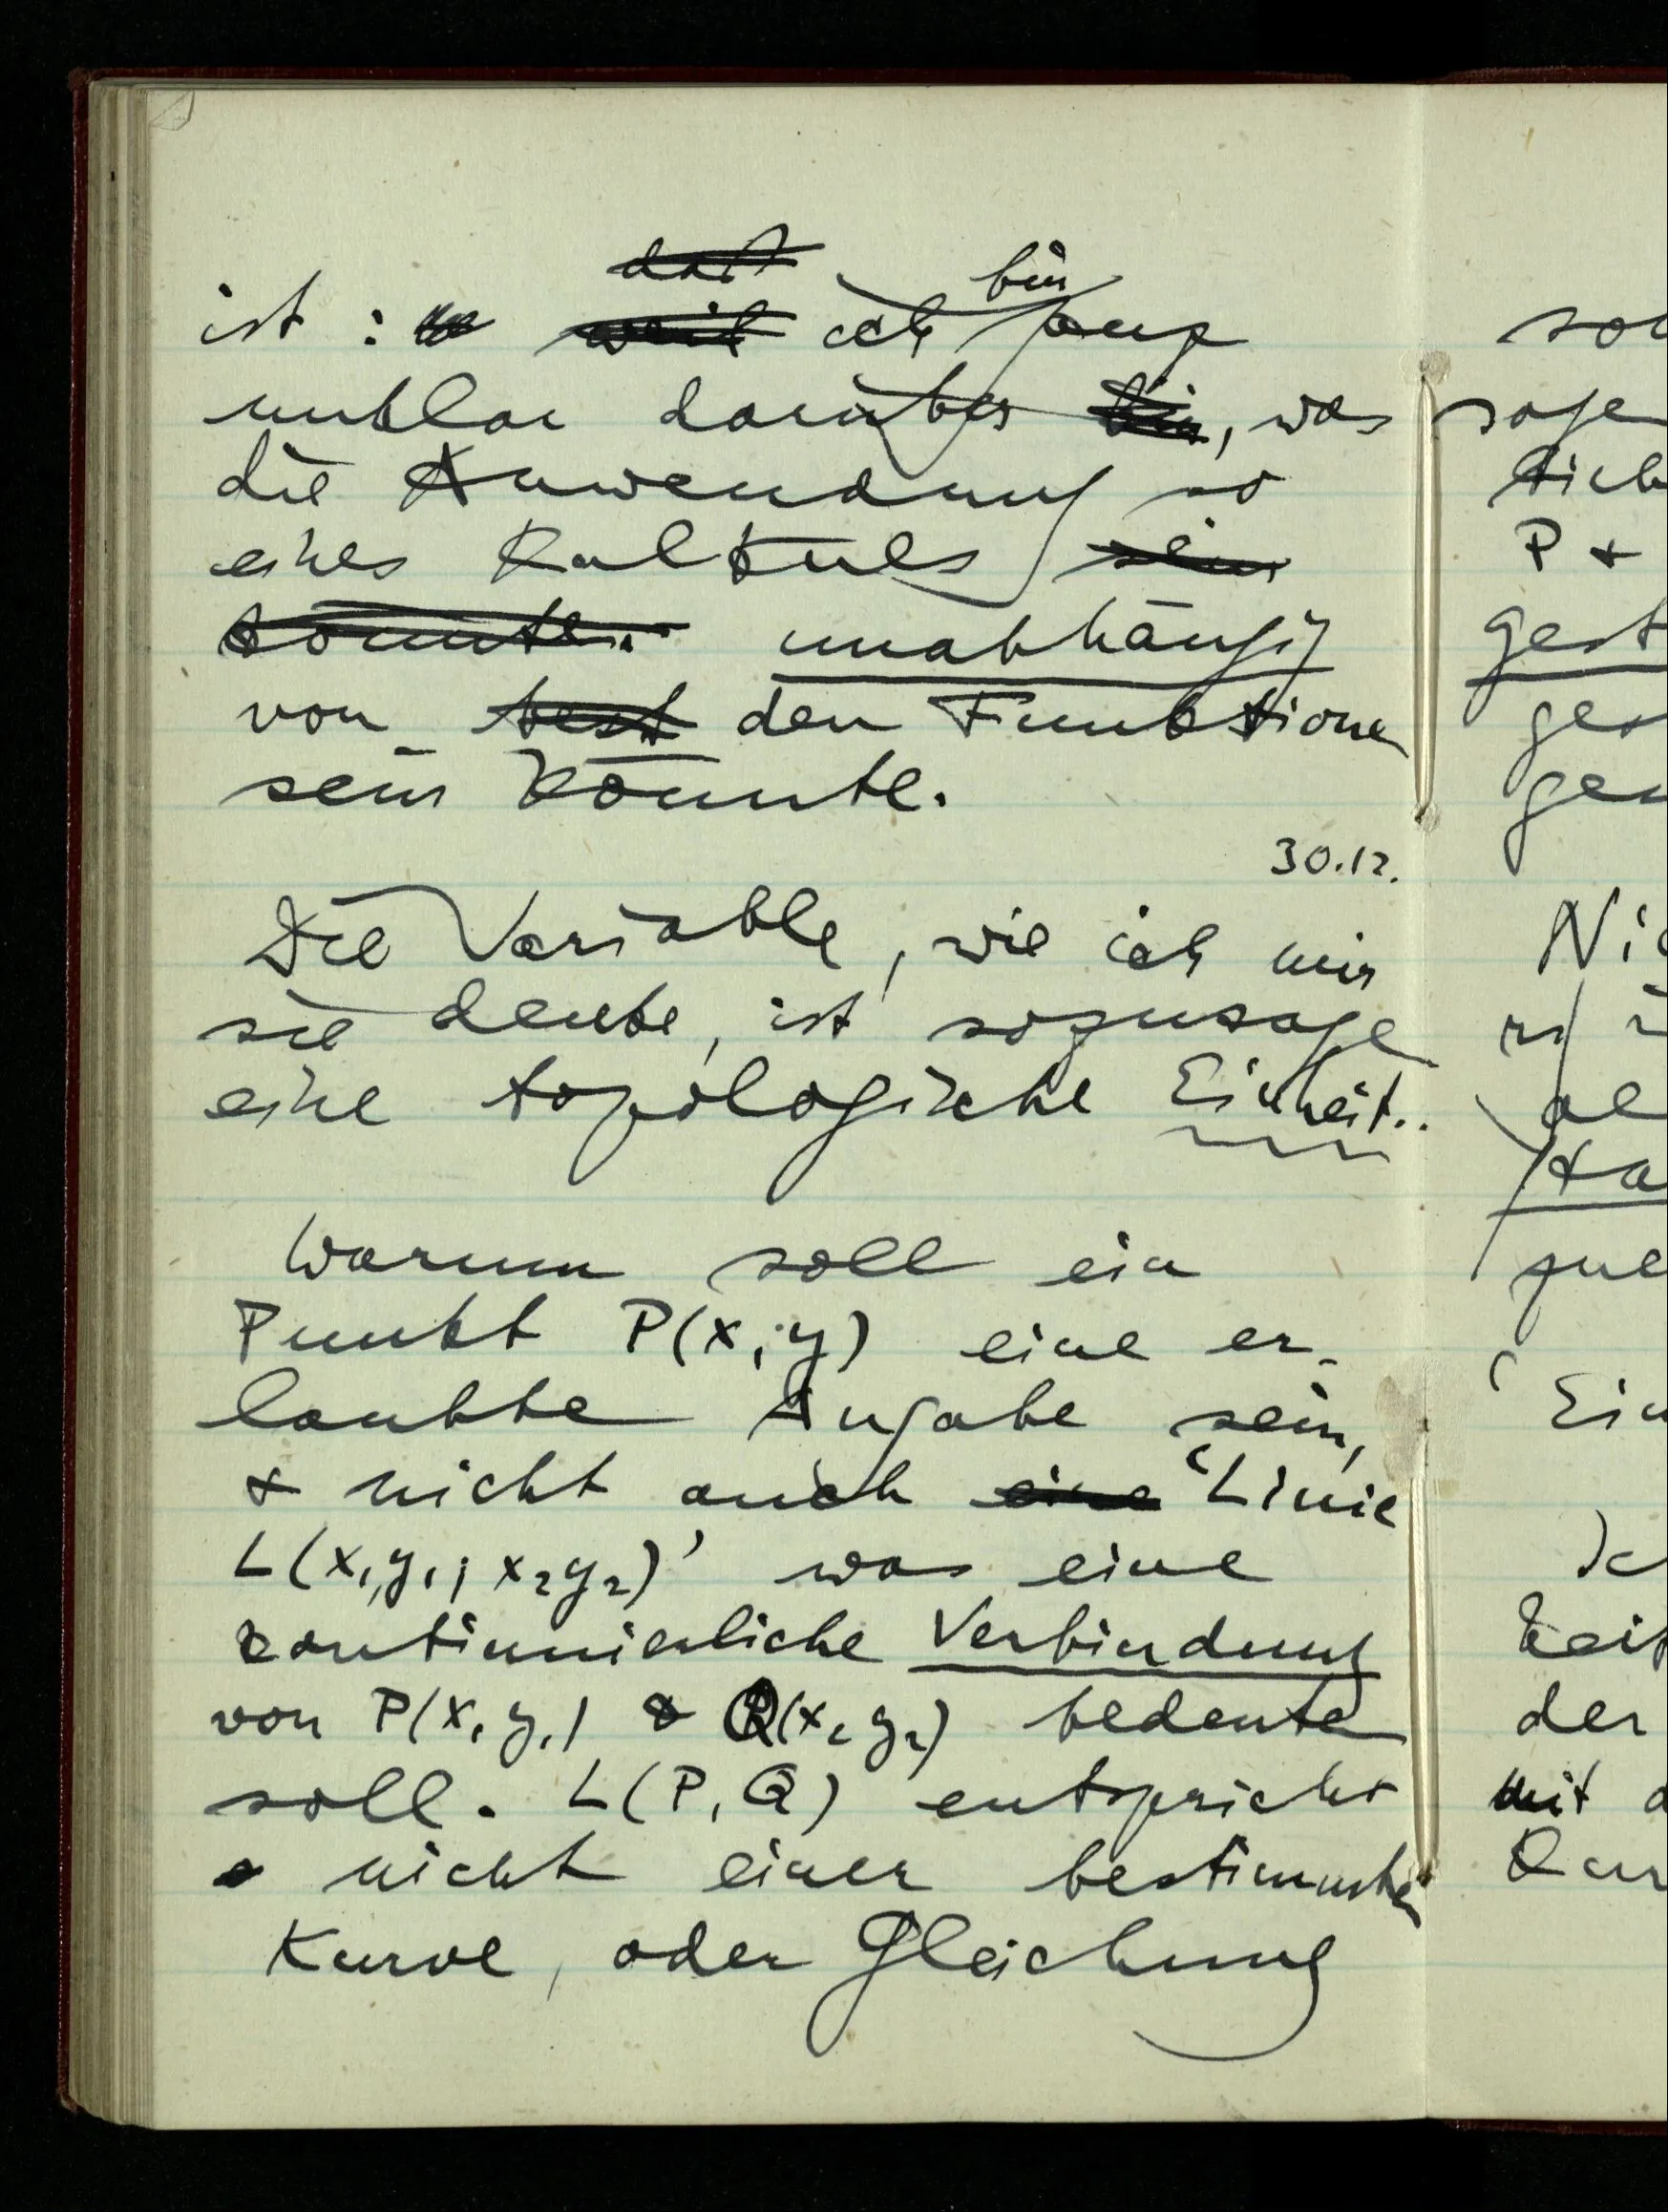 ist : ich bin ganz
unklar darüber, was
die Anwendung so
eines Kalküls
unabhängig
von den Funktionen
sein könnte.
30.12.
Die Variable, wie ich mir
sie denke, ist sozusagen
eine topologische Einheit..
Warum soll ein
Punkt P(x,y) eine er-
laubte Angabe sein,
& nicht auch eine 'Linie
L(x₁y₁; x₂y₂)' was eine
kontinuierliche Verbindung
von P(x₁y₁) & Q(x₂y₂) bedeuten
soll. L(P,Q) entspricht
nicht einer bestimmten
Kurve, oder Gleichung